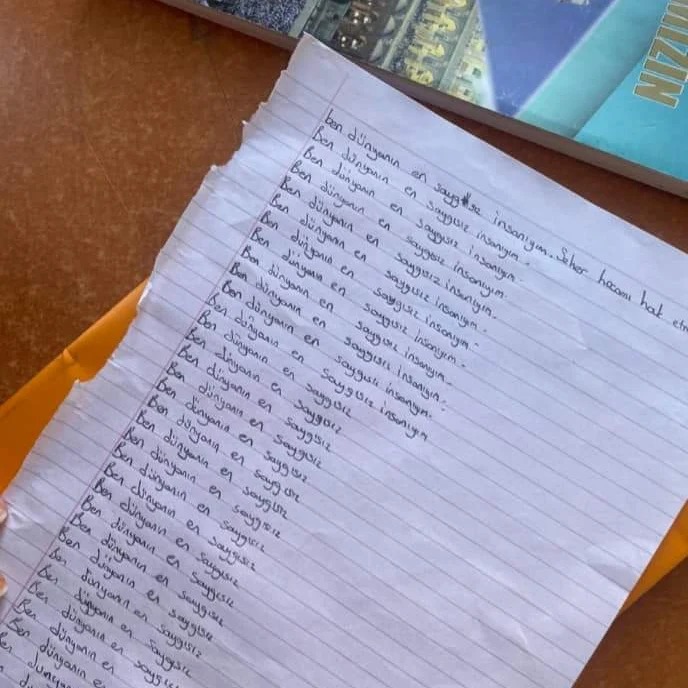 MIZIN
ben dünyanın en saygısız insanıyım. Seher hocamı hak etm
Ben dünyanın en saygısız insanıyım.
Ben dünyanın en saygısız insanıyım.
Ben dünyanın en saygısız insanıyım.
Ben dünyanın en saygısız insanıyım.
Ben dünyanın en saygısız insanıyım.
Ben dünyanın en saygısız insanıyım.
Ben dünyanın en saygısız insanıyım.
Ben dünyanın en saygısız insanıyım.
Ben dünyanın en saygısız insanıyım.
Ben dünyanın en saygısız insanıyım
Ben dünyanın en saygısız
Ben dünyanın en saygısız
Ben dünyanın en saygısız
Ben dünyanın en saygısız
Ben dünyanın en saygısız
Ben dünyanın en saygısız
Ben dünyanın en saygısız
Ben dünyanın en saygısız
Ben dünyanın en saygısız
Ben dünyanın en saygısız
Ben dünyanın en saygısız
Ben dünyanın en saygısız
Ben dünyanın en saygısız
Ben dünyanın en
Ben dünyanın